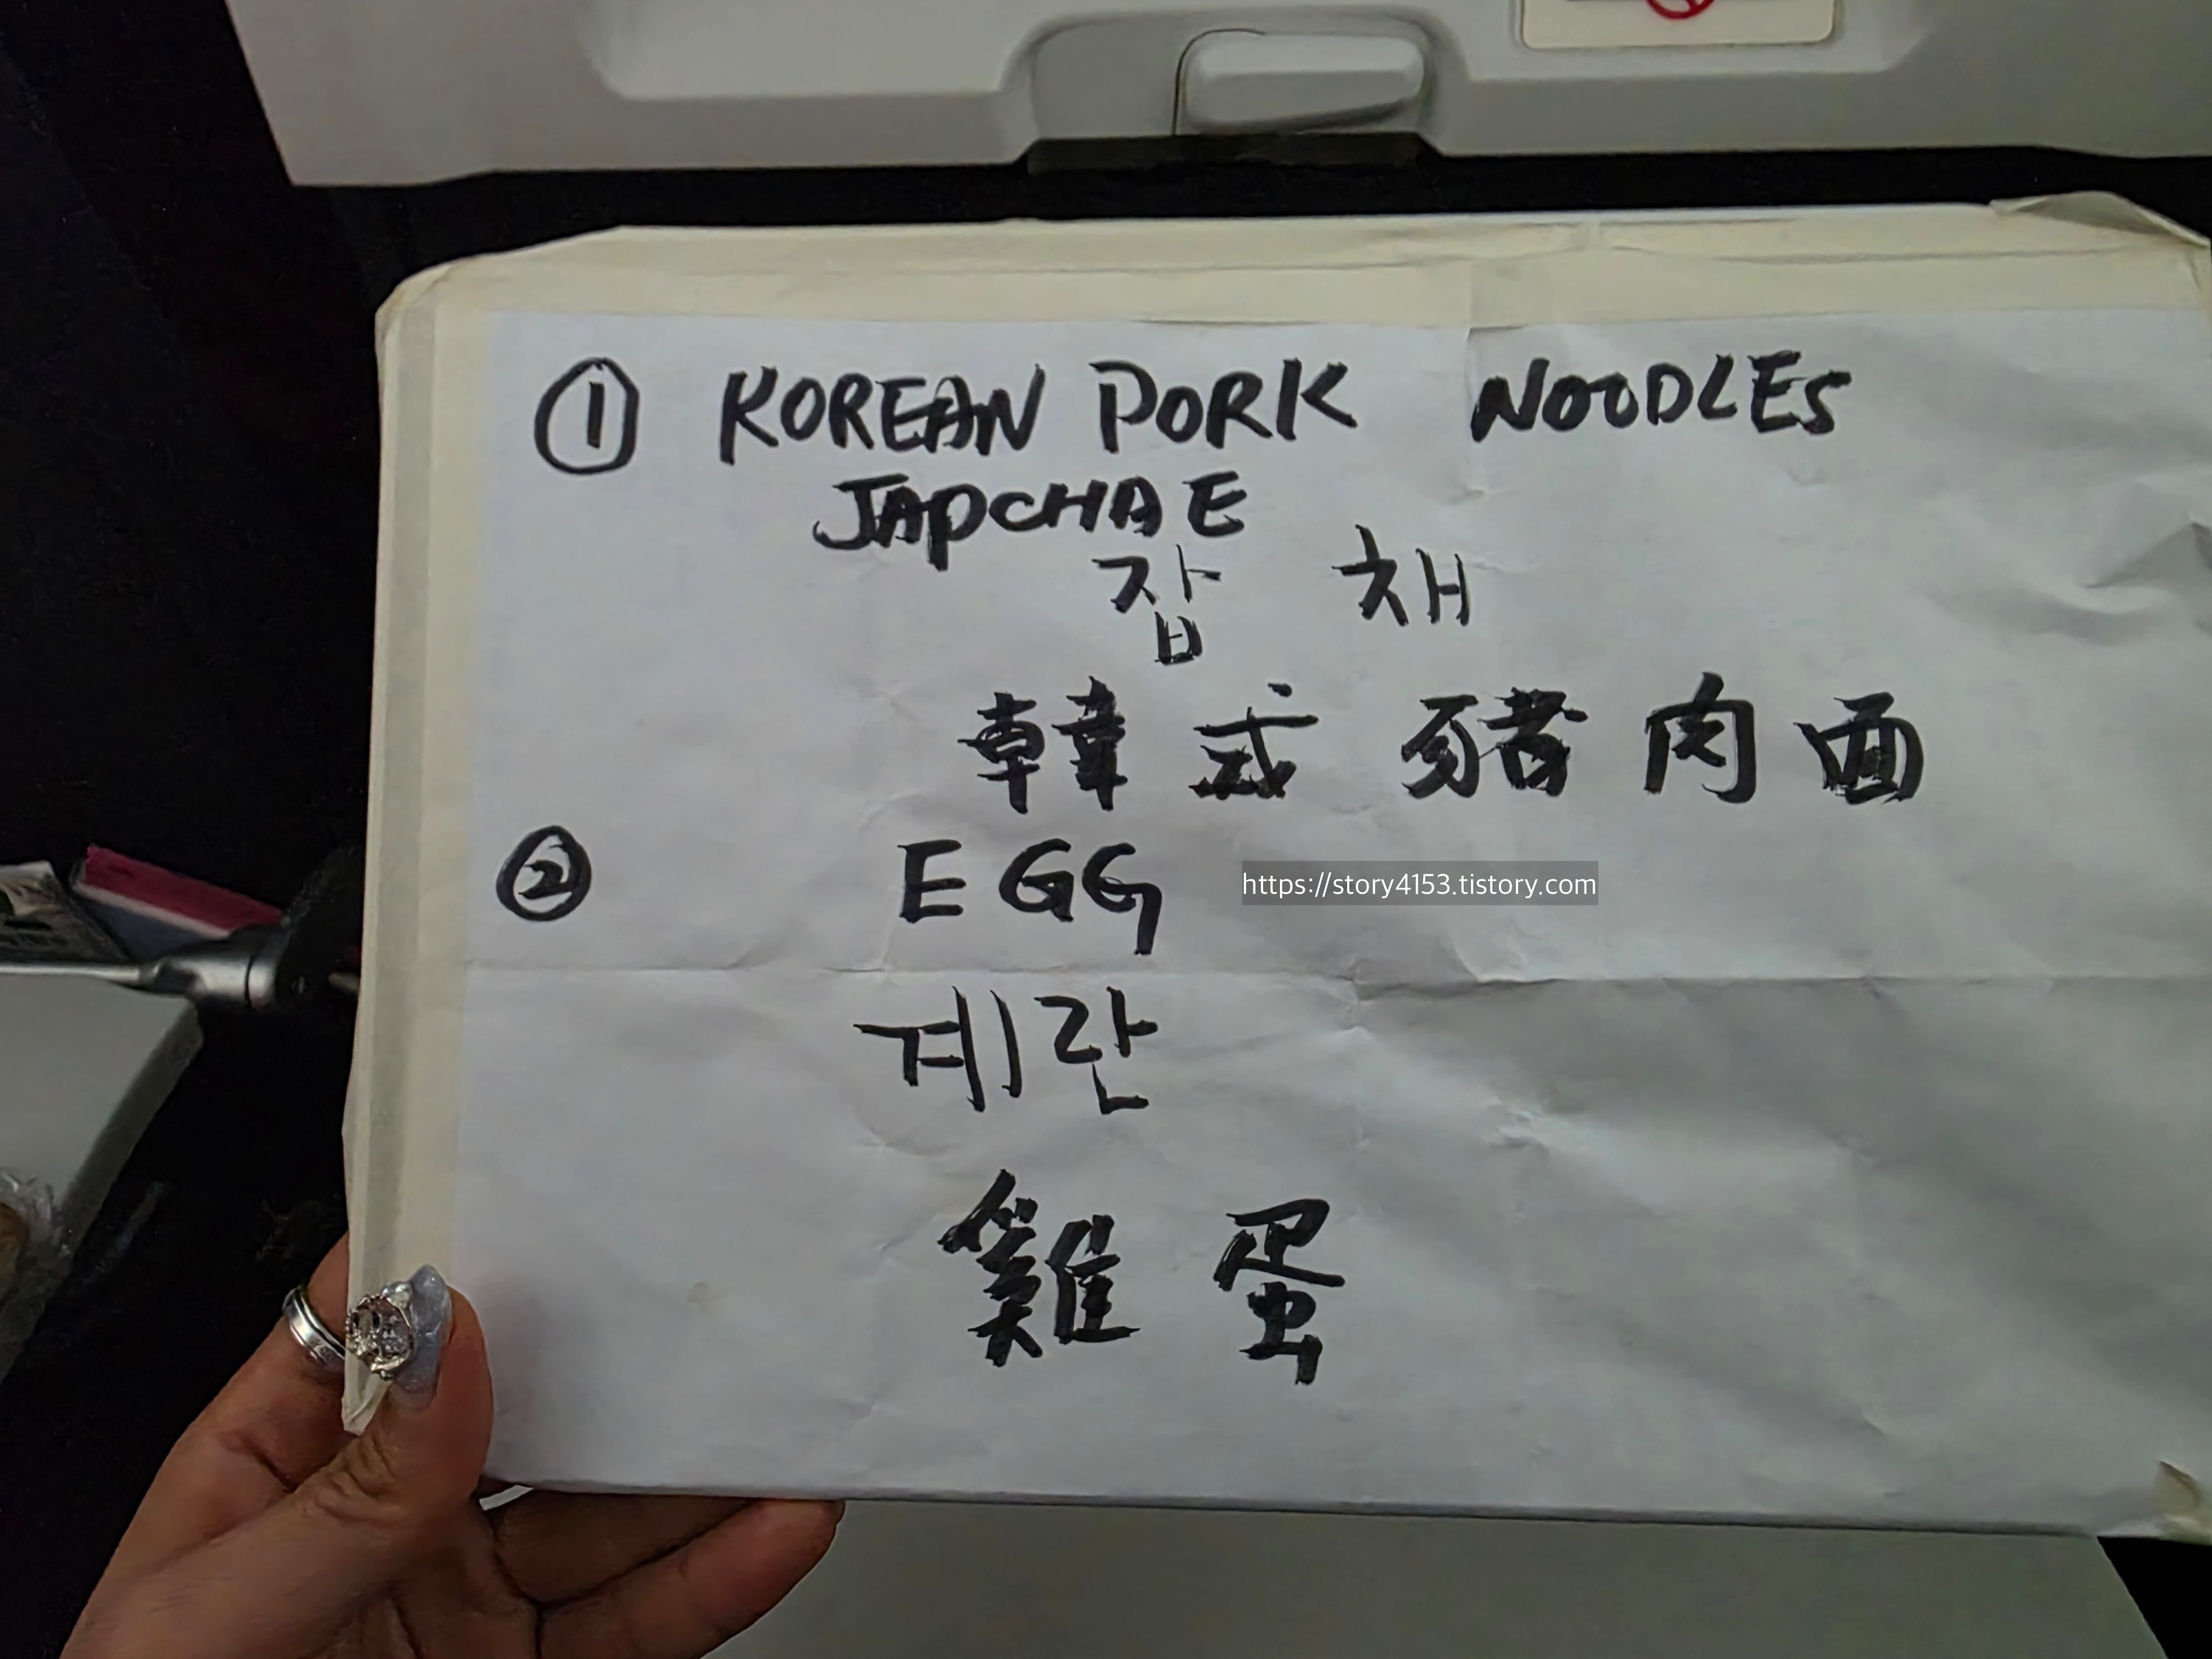 ① KOREAN PORK NOODLES
JAPCHAE
잡 채
韓式豬肉面
② EGG
https://story4153.tistory.com
계란
雞蛋